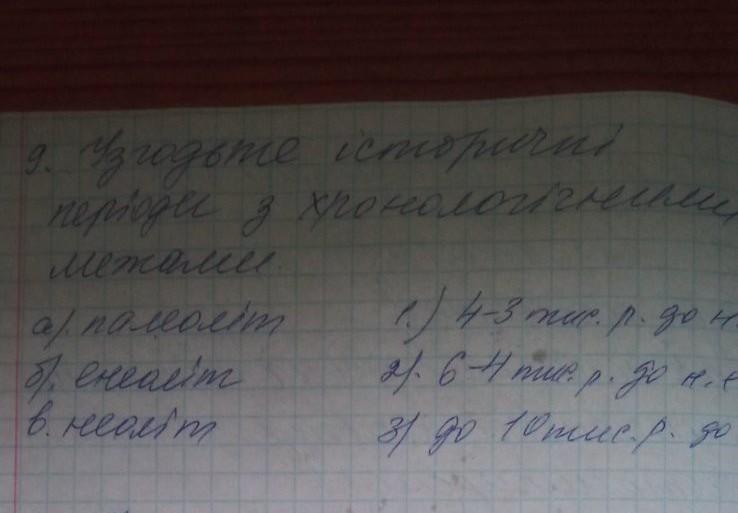 9. Узгодьте історичні
періоди з хронологічними
межами.
а). палеоліт 1.) 4-3 тис. р. до н.
б). енеоліт 2). 6-4 тис. р. до н. е
в. неоліт 3) до 10 тис. р. до